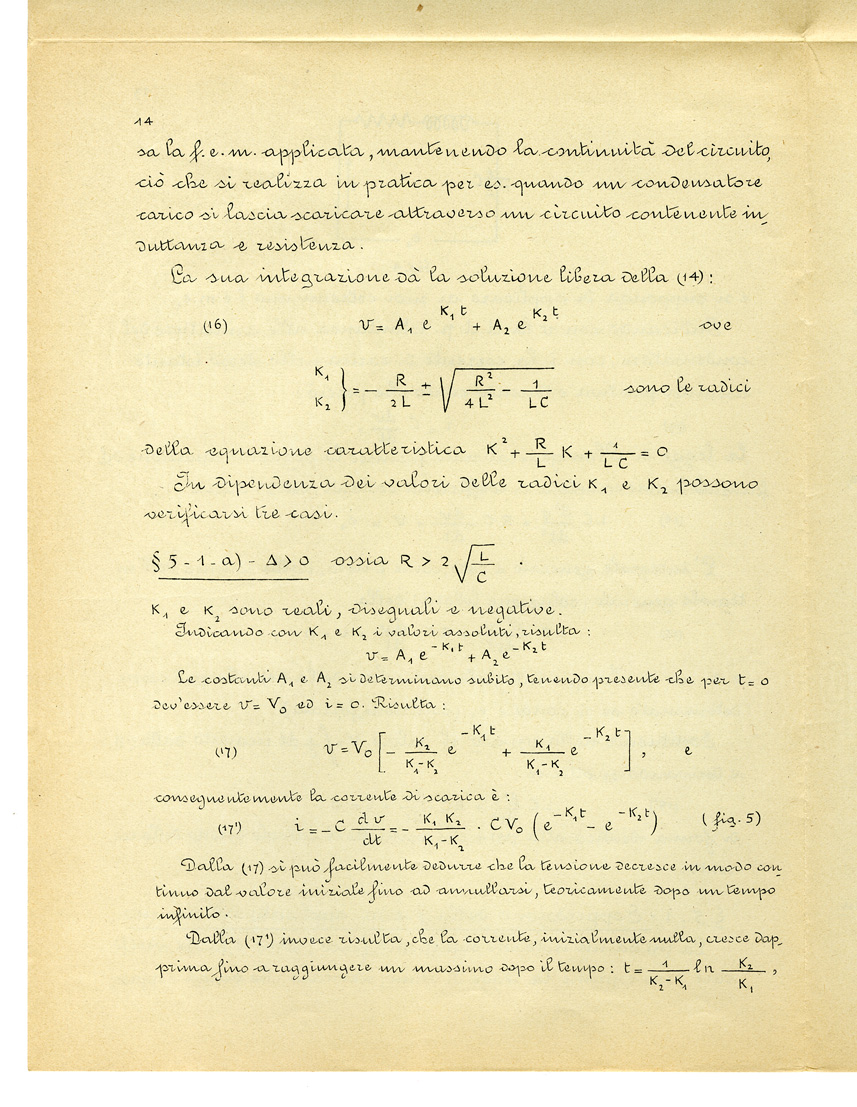 14
sa la f.e.m. applicata, mantenendo la continuità del circuito,
ciò che si realizza in pratica per es. quando un condensatore
carico si lascia scaricare attraverso un circuito contenente in
duttanza e resistenza.
La sua integrazione dà la soluzione libera della (14):
(16) v = A₁ e^{K₁t} + A₂ e^{K₂t} ove
K₁ K₂ } = - R/2L ± √(R²/4L² - 1/LC) sono le radici
della equazione caratteristica K² + R/L K + 1/LC = 0
In dipendenza dei valori delle radici K₁ e K₂ possono
verificarsi tre casi.
§ 5-1-a) - Δ > 0 ossia R > 2 √(L/C) .
K₁ e K₂ sono reali, diseguali e negative.
Indicando con K₁ e K₂ i valori assoluti, risulta:
v = A₁ e^{-K₁t} + A₂ e^{-K₂t}
Le costanti A₁ e A₂ si determinano subito, tenendo presente che per t = 0
dev'essere v = V₀ ed i = 0. Risulta:
(17) v = V₀ [ - K₂/(K₁-K₂) e^{-K₁t} + K₁/(K₁-K₂) e^{-K₂t} ] , e
conseguentemente la corrente di scarica è:
(17') i = - C dv/dt = - K₁ K₂/(K₁-K₂) · C V₀ ( e^{-K₁t} - e^{-K₂t} ) (fig. 5)
Dalla (17) si può facilmente dedurre che la tensione decresce in modo con
tinuo dal valore iniziale fino ad annullarsi, teoricamente dopo un tempo
infinito.
Dalla (17') invece risulta, che la corrente, inizialmente nulla, cresce dap
prima fino a raggiungere un massimo dopo il tempo: t = 1/(K₂-K₁) ln K₂/K₁ ,